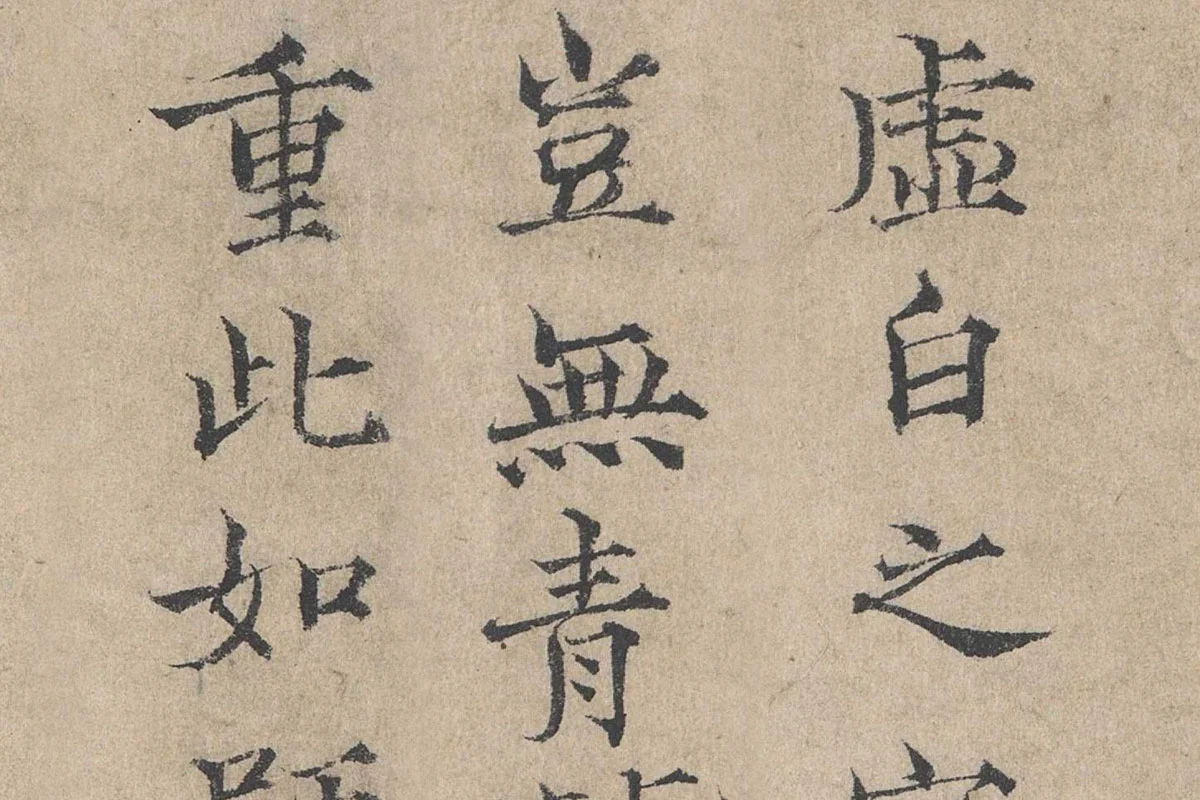 虛白之室
豈無青
重此如